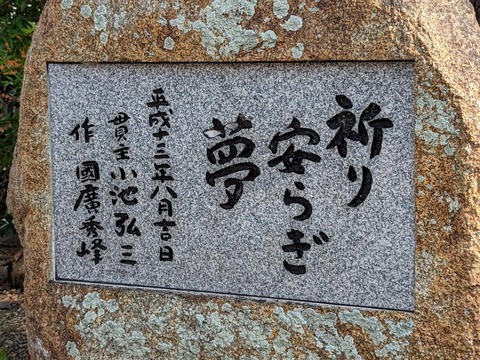 祈り
安らぎ
夢
平成十三年八月吉日
貫主小池弘三
作 國廣秀峰